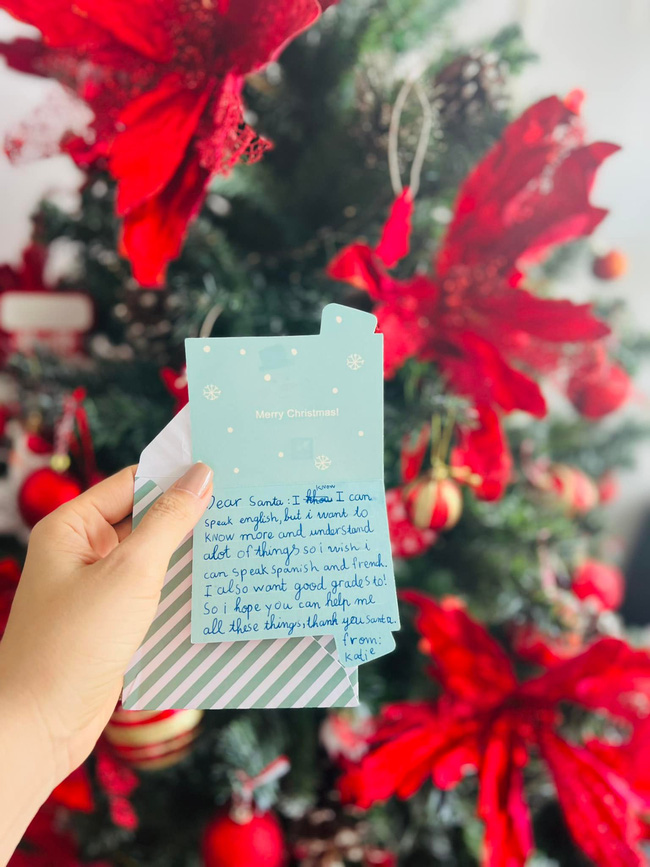 Merry Christmas!
know
Dear Santa: I I can
speak english, but i want to
know more and understand
alot of things so i wish i
can speak spanish and french.
I also want good grades to!
So i hope you can help me
all these things, thank you santa.
from:
Katie